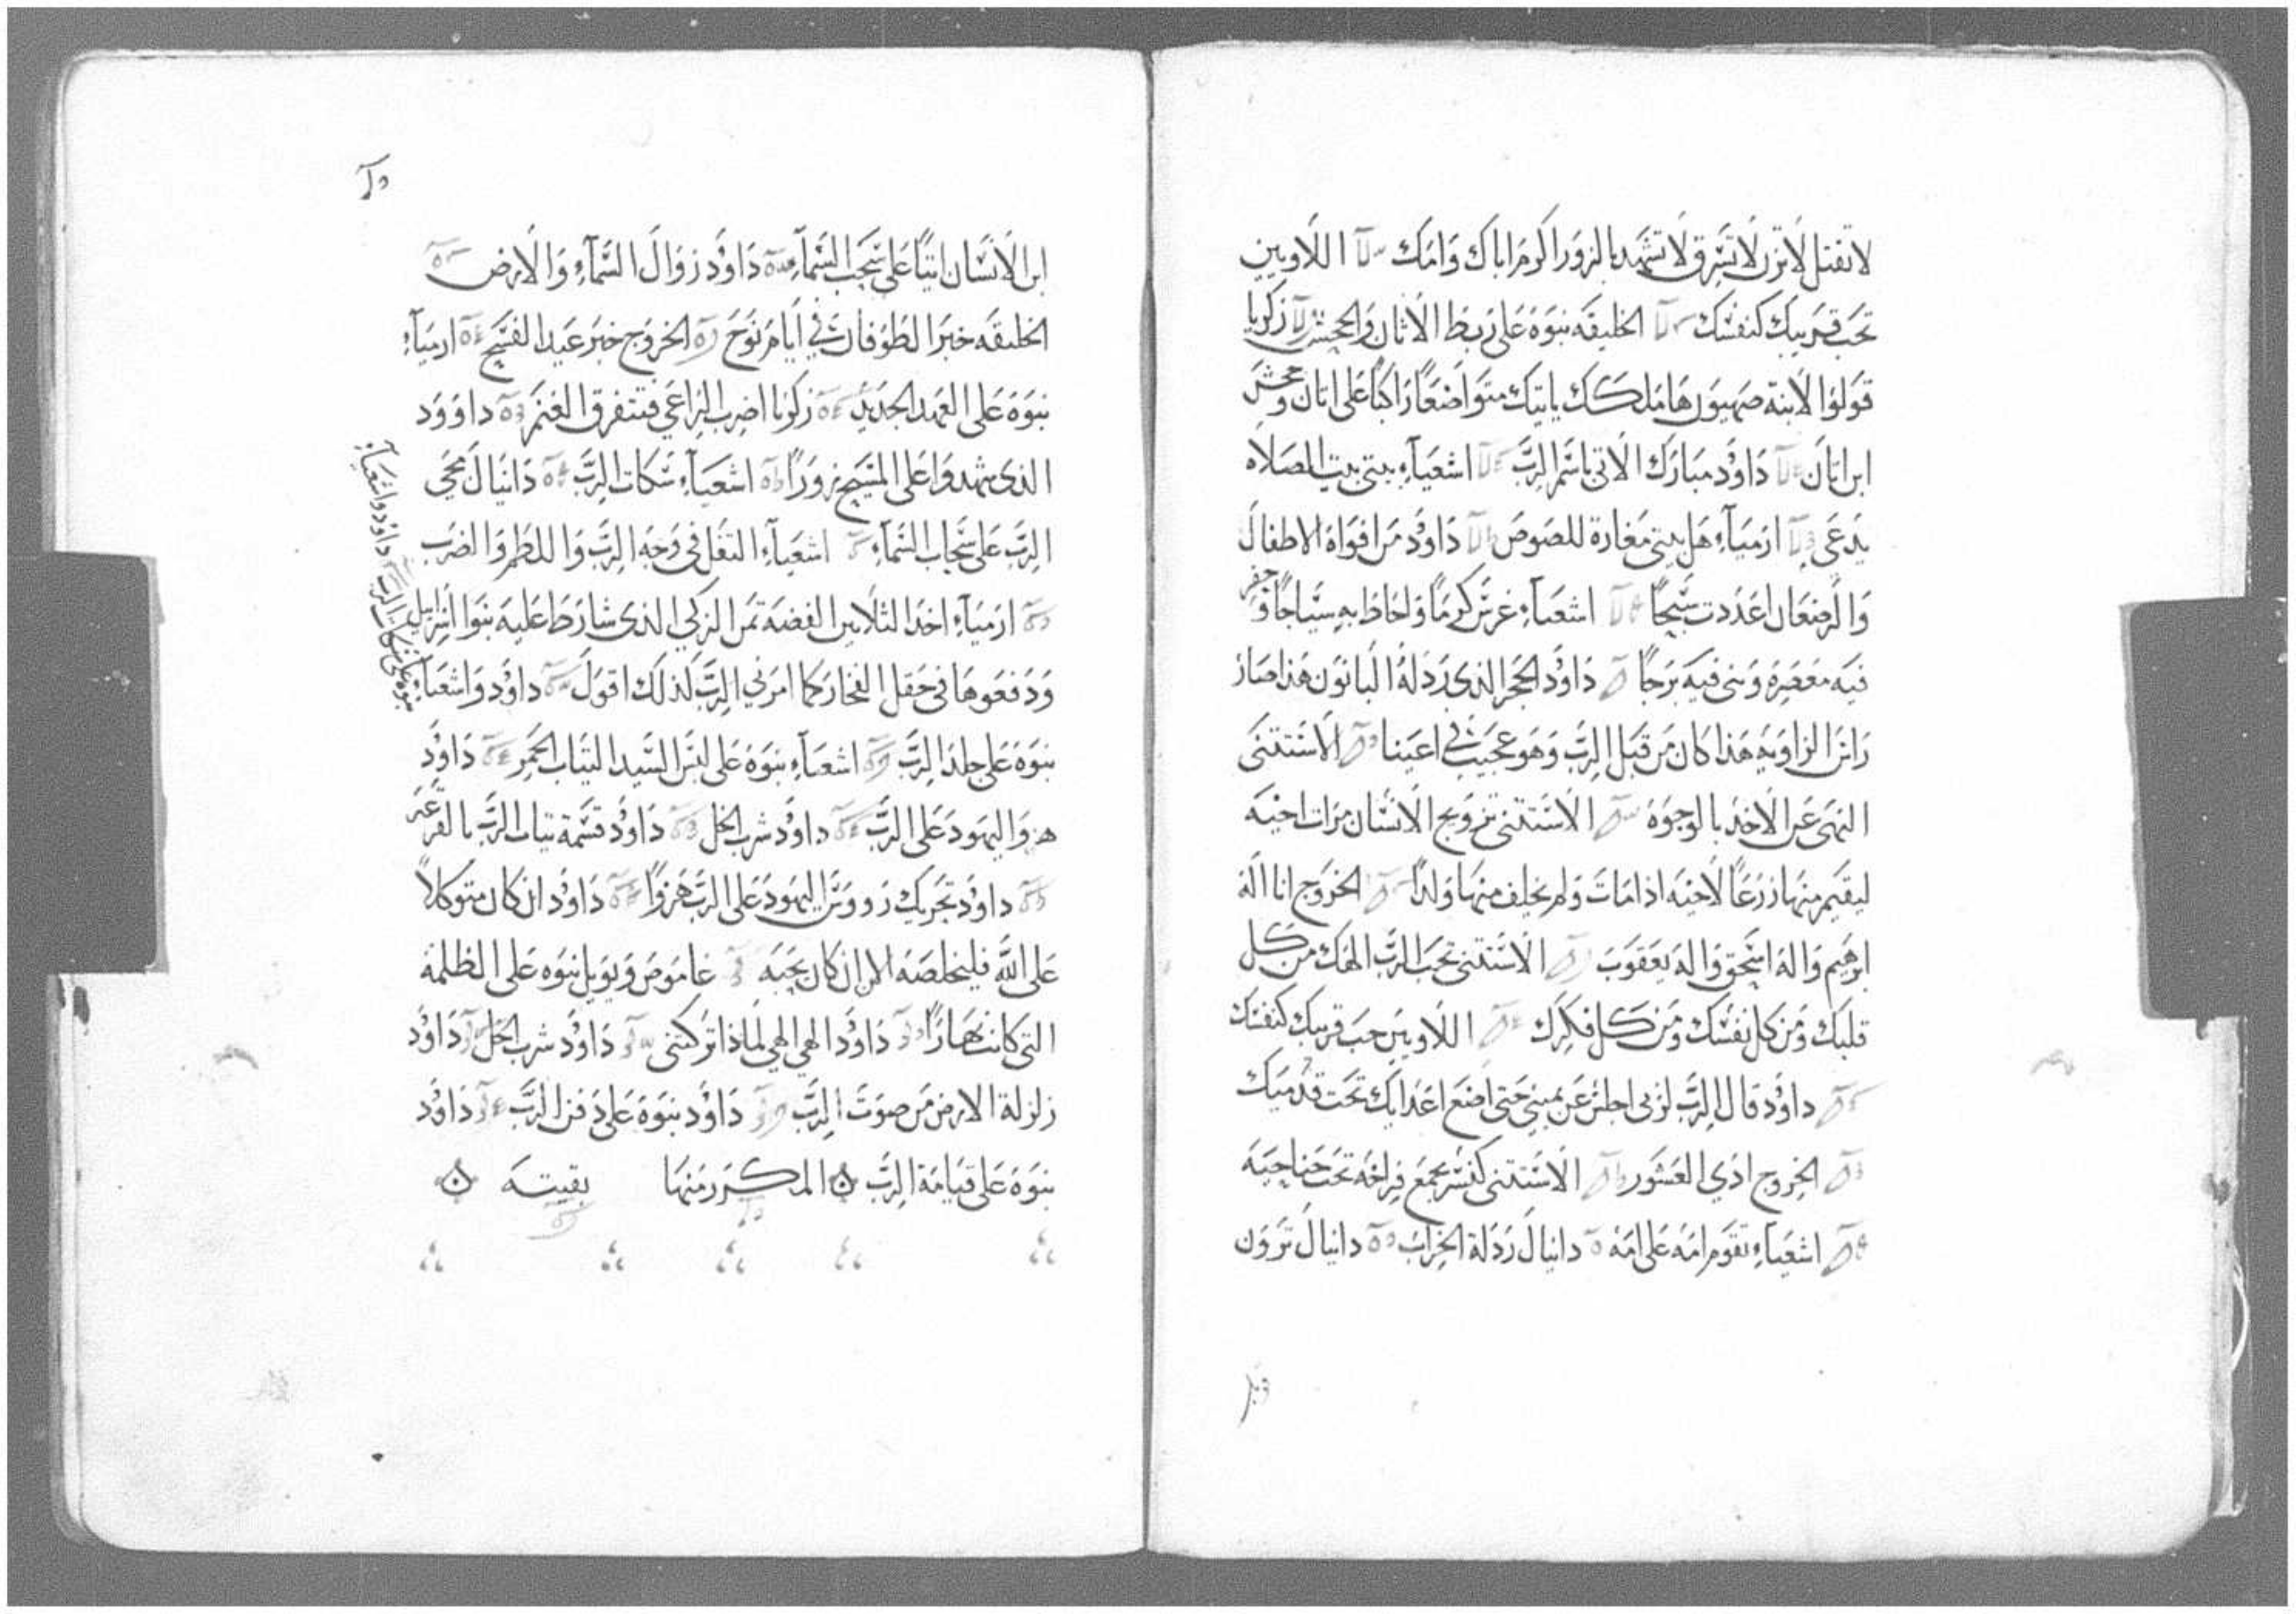 لا تقتل لا تزن لا تسرق لا تشهد بالزور اكرم اباك وامك اللاويين
تحب قريبك كنفسك الخليقه نبوه على ربط الاتان والجحش زكريا
قولوا لابنة صهيون ها ملكك ياتيك متواضعًا راكبًا على اتان وجحش
ابن اتان داوُد مبارك الاتي باسم الرب اشعياء بيتي بيت الصلاه
يدعى ارمياء هل بيتي مغارة للصوص داوُد من افواه الاطفال
والرضعان اعددت سبحًا اشعياء غرس كرمًا واحاط به سياجًا وحفر
فيه معصره وبنى فيه برجًا داوُد الحجر الذي رذله البانون هذا صار
راس الزاويه هذا كان من قبل الرب وهو عجيب في اعيننا الاستثنى
النهي عن الاخذ بالوجوه الاستثنى تزويج الانسان مرات اخيه
ليقيم منها زرعًا لاخيه اذا مات ولم يخلف منها ولدًا الخروج انا اله
ابرهيم واله اسحق واله يعقوب الاستثنى تحب الرب الهك من كل
قلبك ومن كل نفسك ومن كل فكرك اللاويين حب قريبك كنفسك
داوُد قال الرب لربي اجلس عن يميني حتى اضع اعدايك تحت قدميك
الخروج ادي العشور الاستثنى كنسر يجمع فراخه تحت جناحيه
اشعياء تقوم امه على امه دانيال رذلة الخراب دانيال ترون
ابن الانسان اتيًا على سحب السماء داوُد زوال السماء والارض
الخليقه خبر الطوفان في ايام نوح الخروج خبر عيد الفسح ارمياء
نبوه على العهد الجديد زكريا اضرب الراعي فتتفرق الغنم داوود
الذي شهدوا على المسيح زورًا اشعياء سكات الرب دانيال مجي
الرب على سحاب السماء اشعياء التفل في وجه الرب واللطم والضرب
ارمياء اخذ الثلاثين الفضه ثمن الزكي الذي شارط عليه بنوا اسراييل
ودفعوها في حقل الفخار كما امرني الرب لذلك اقول داوُد واشعياء
نبوه على سكات الرب داوُد واشعياء
نبوه على جلد الرب اشعياء نبوه على لبس السيد الثياب الحمر داوُد
هزو اليهود على الرب داوُد شرب الخل داوُد قسمة ثياب الرب بالقرعه
داوُد تحريك رووس اليهود على الرب هزوًا داوُد ان كان متوكلاً
على الله فليخلصه الان ان كان يحبه عاموص ويوييل نبوه على الظلمة
التي كانت نهارًا داوُد الهي الهي لماذا تركتني داوُد شرب الخل داوُد
زلزلة الارض من صوت الرب داوُد نبوه على دفن الرب داوُد
نبوه على قيامة الرب المكرر منها بقيته